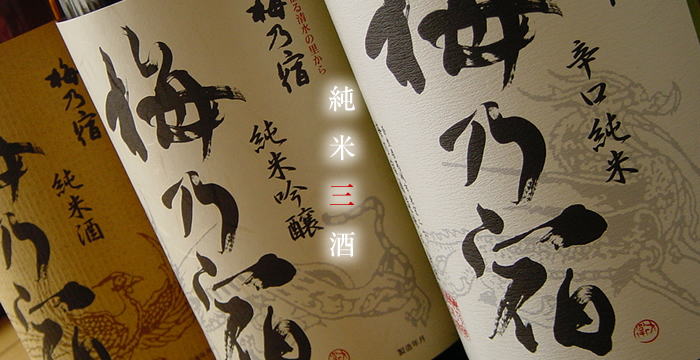 純米三酒
梅乃宿
辛口純米
る清水の里から
梅乃宿
梅乃宿
純米吟醸
製造年月
梅乃宿
梅乃宿
純米酒